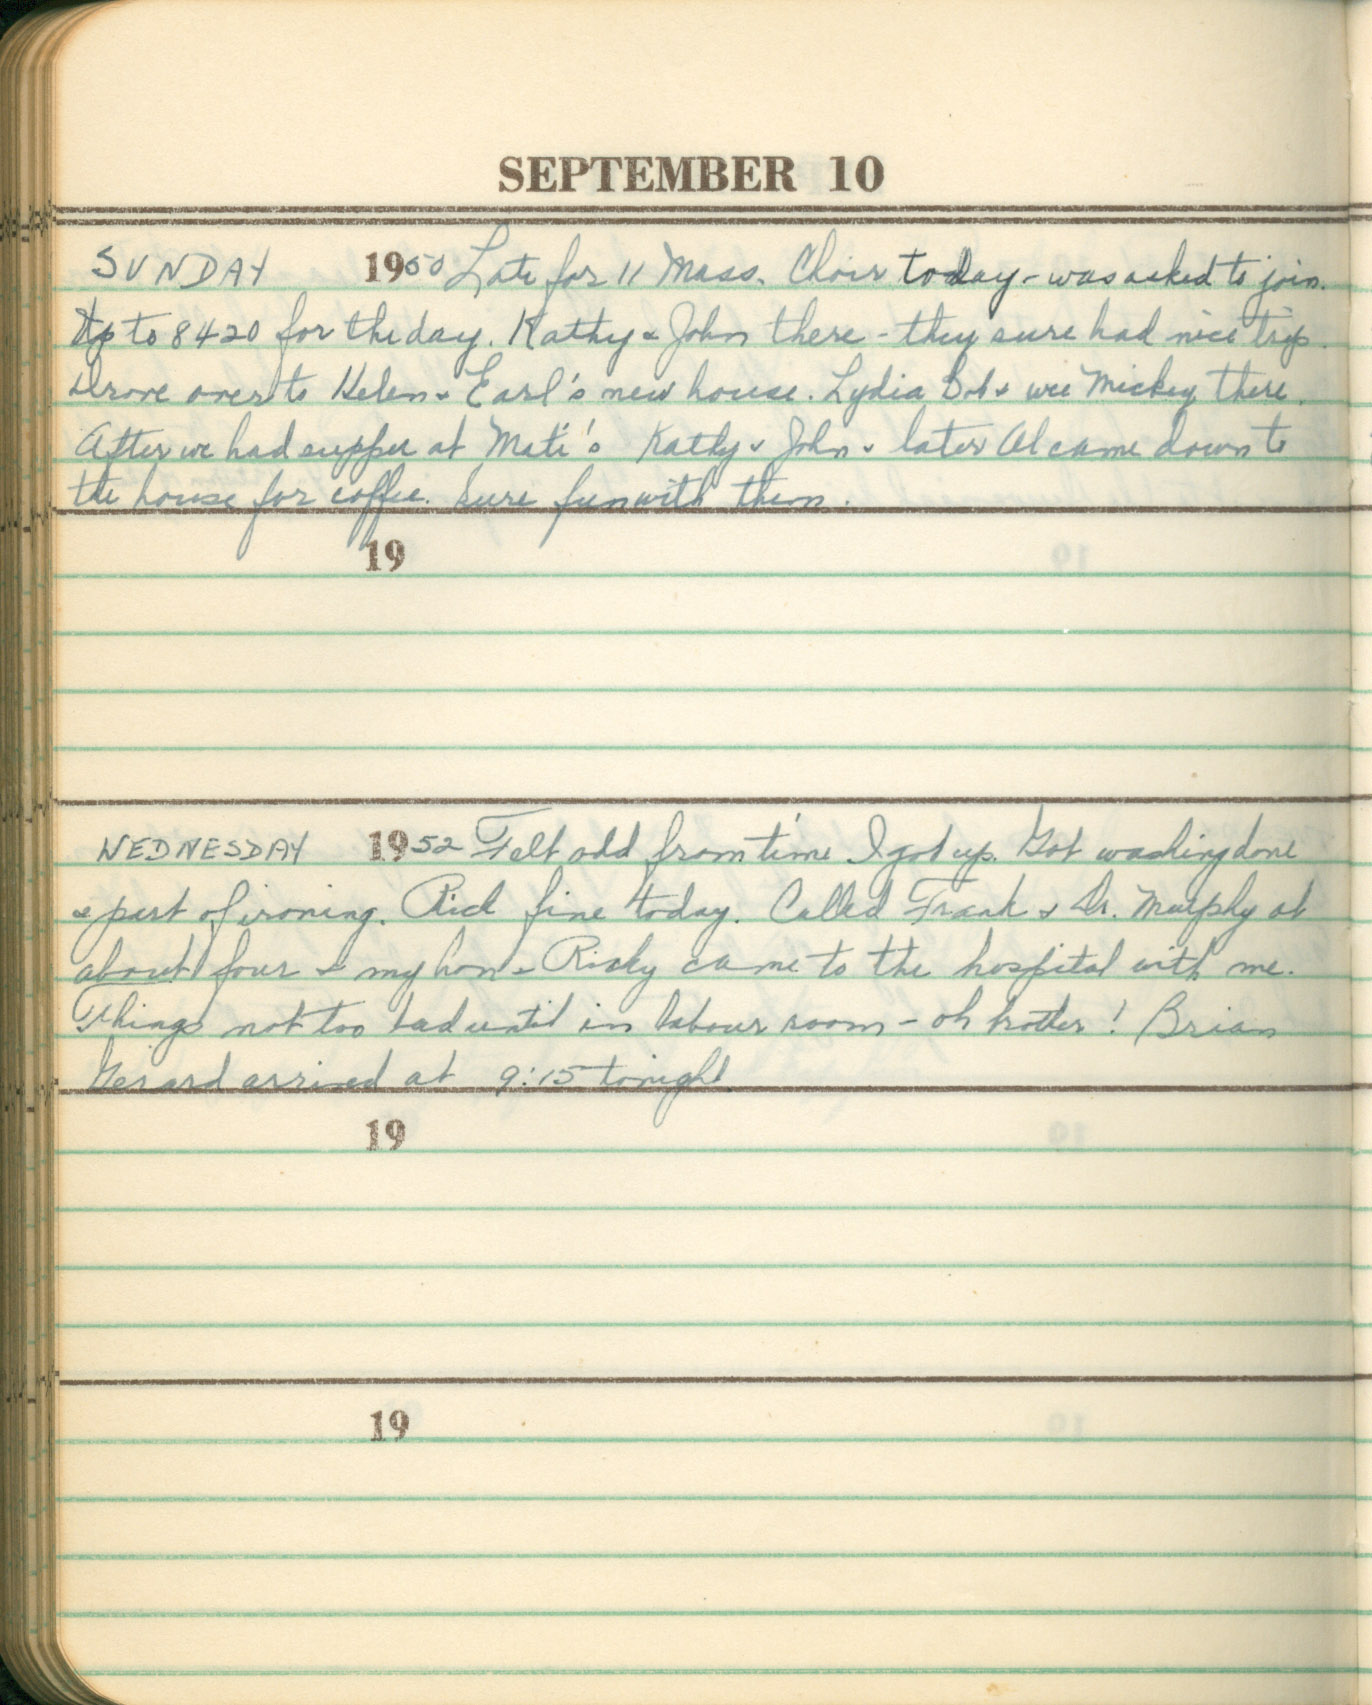 SEPTEMBER 10
SUNDAY 1950 Late for 11 Mass. Choir today - was asked to join.
Up to 8420 for the day. Kathy & John there - they sure had nice trip.
Drove over to Helen & Earl's new house. Lydia Bob & wee Mickey there.
After we had supper at Mati's Kathy & John & later Al came down to
the house for coffee. Sure fun with them.
19
WEDNESDAY 1952 Felt odd from time I got up. Got washing done
& part of ironing. Rick fine today. Called Frank & Dr. Murphy at
about four & my hon & Ricky came to the hospital with me.
Things not too bad until in labour room - oh brother! Brian
Gerard arrived at 9:15 tonight.
19
19